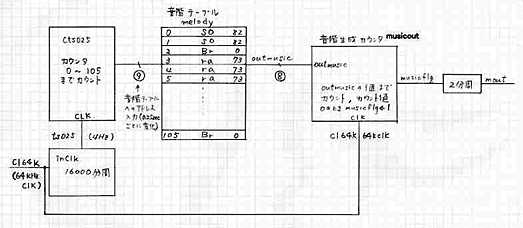 CtsO25
カウンタ
0 ～ 105
までカウント
CLK
ts025 (4Hz)
inClk
16000分周
Cl64K
(64KHz
Clk)
⑨
音階テーブル
へのアドレス
入力(0.25sec
ごとに変化)
音階テーブル
melody
0 SO 82
1 SO 82
2 Br 0
3 ra 73
4 ra 73
5 ra 73
105 Br 0
outmusic
⑧
音階生成カウンタ musicout
outmusic
outmusicの値まで
カウント, カウント値
0のときmusicflg=1
Clk
Cl64K 64kclk
musicflg
2分周
mout